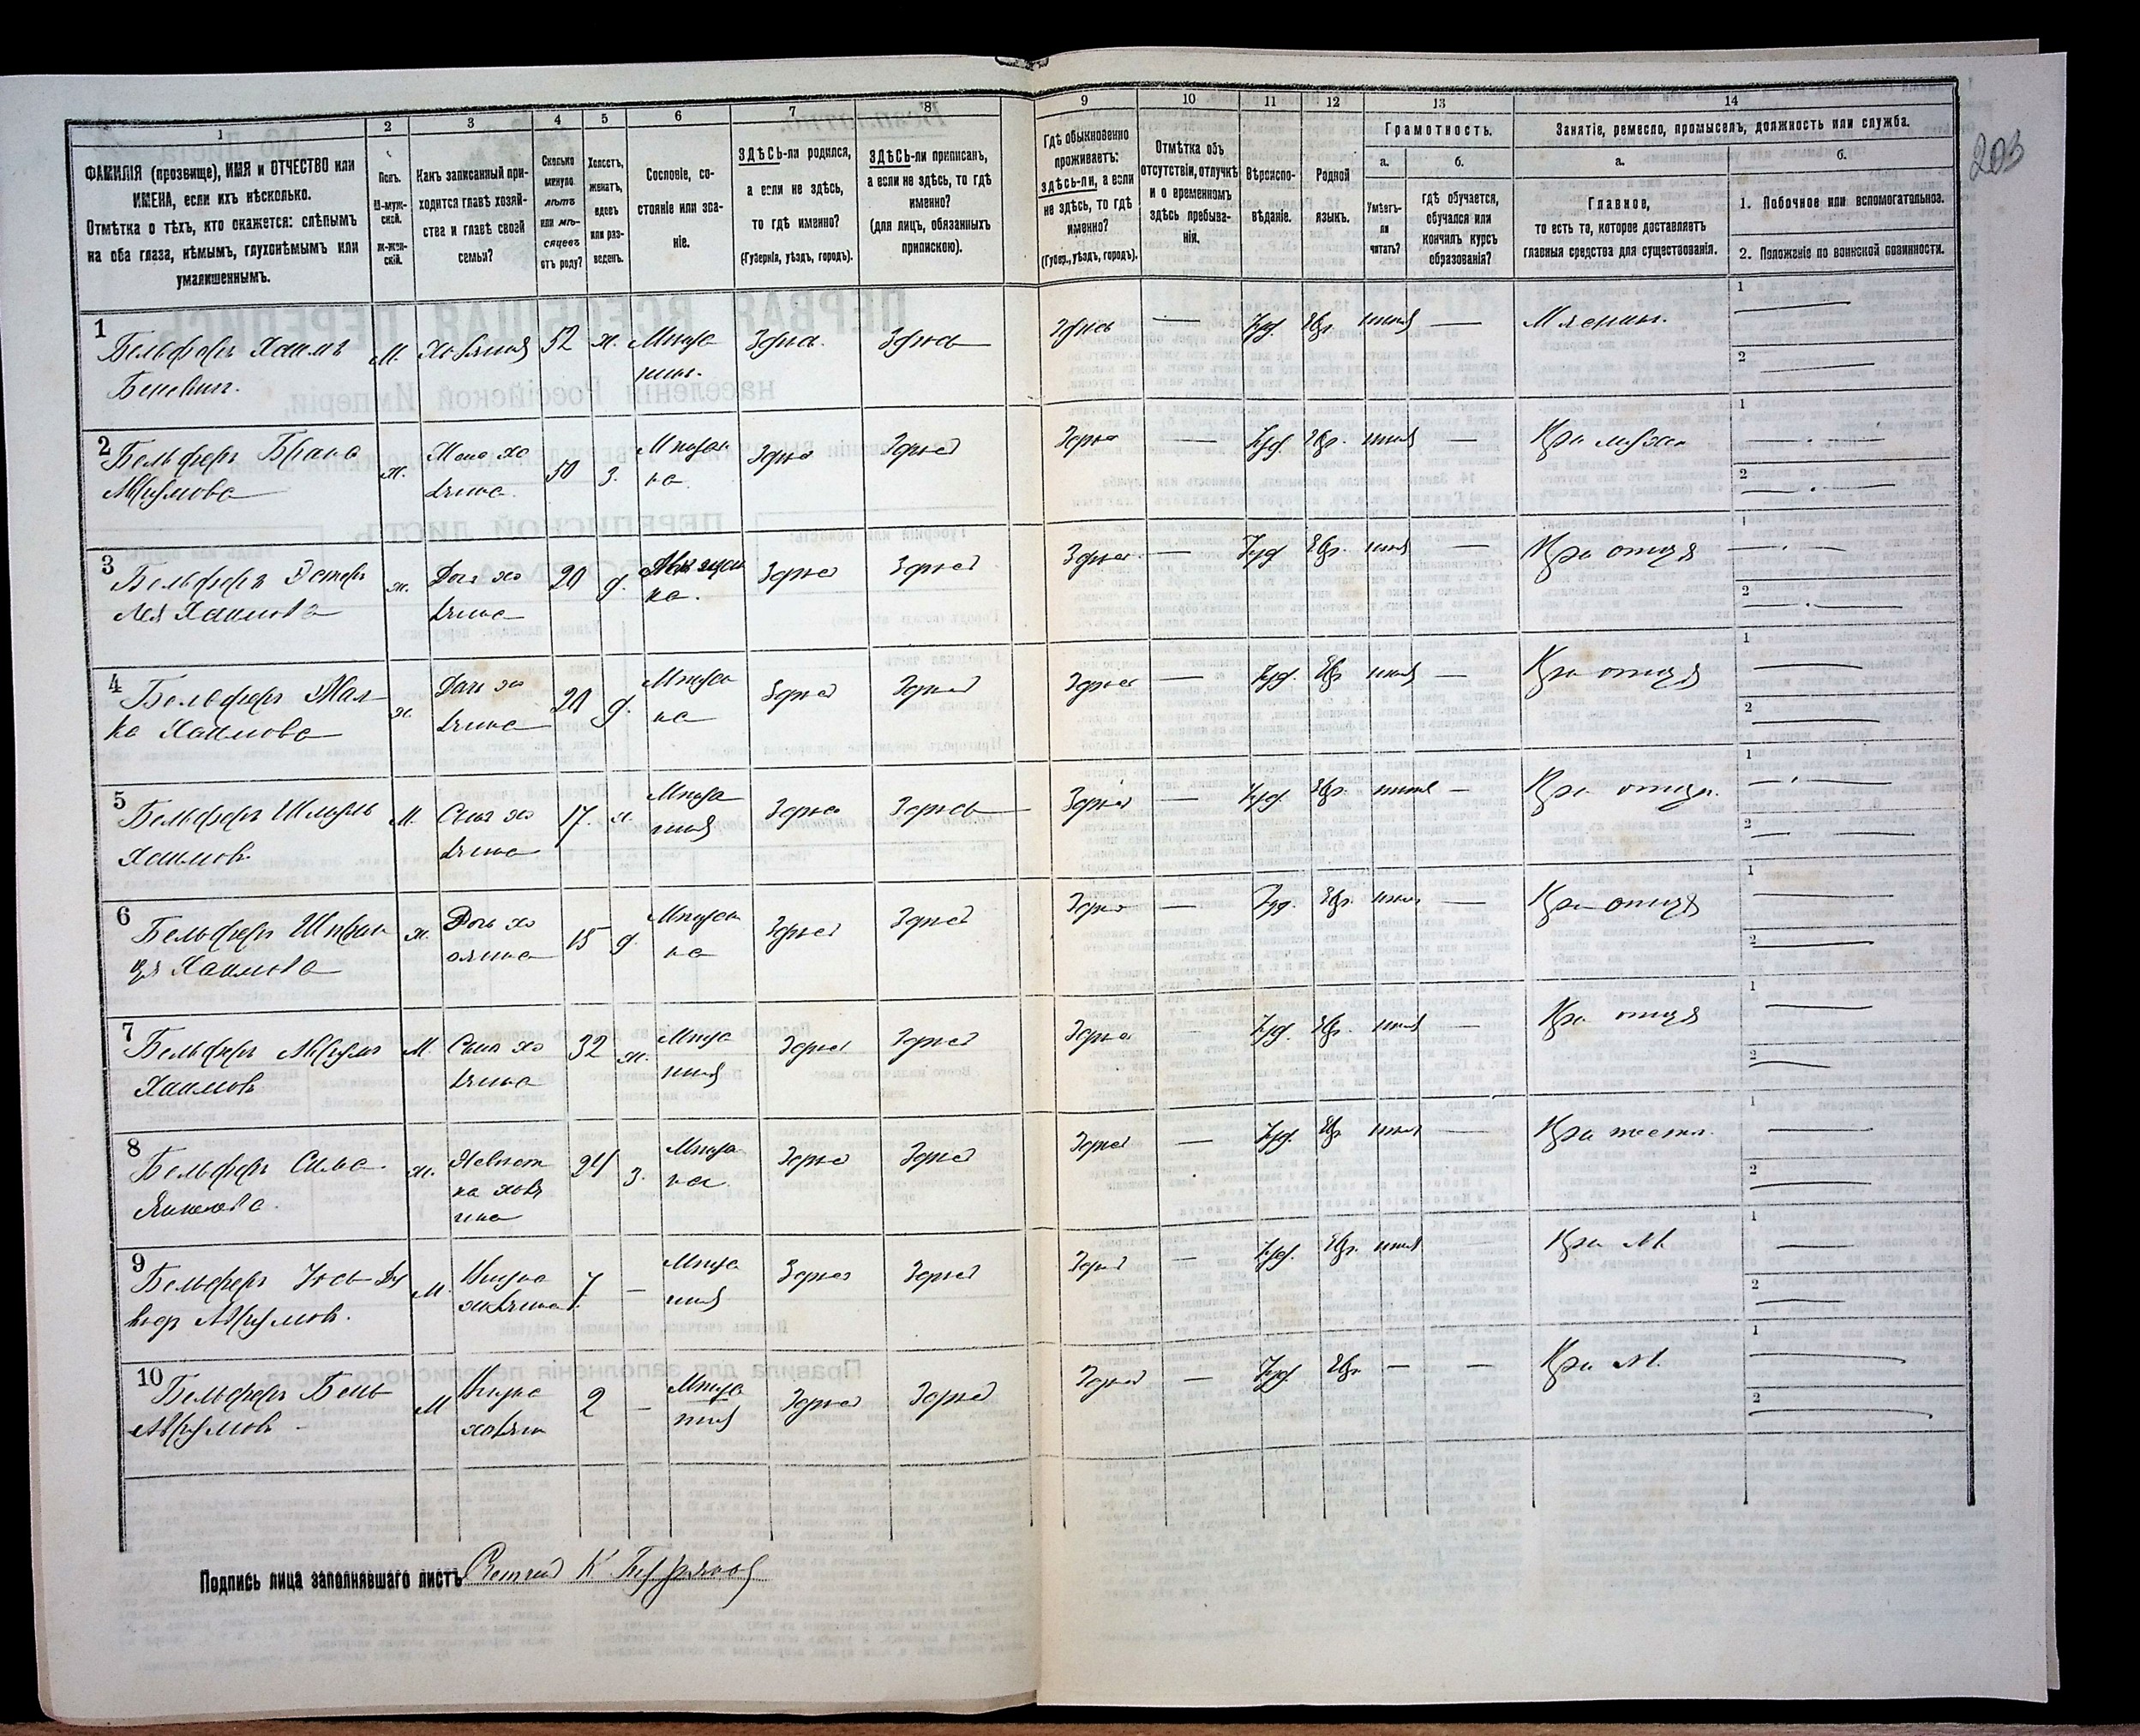 1
ФАМИЛІЯ (прозвище), ИМЯ и ОТЧЕСТВО или
ИМЕНА, если ихъ нѣсколько.
Отмѣтка о тѣхъ, кто окажется: слѣпымъ
на оба глаза, нѣмымъ, глухонѣмымъ или
умалишеннымъ.
2
Полъ.
М-муж-
ской.
ж-жен-
скій.
3
Какъ записанный при-
ходится главѣ хозяй-
ства и главѣ своей
семьи?
4
Сколько
минуло
лѣтъ
или мѣ-
сяцевъ
отъ роду?
5
Холостъ,
женатъ,
вдовъ
или раз-
веденъ.
6
Сословіе, со-
стояніе или зва-
ніе.
7
ЗДѢСЬ-ли родился,
а если не здѣсь,
то гдѣ именно?
(Губернія, уѣздъ, городъ).
8
ЗДѢСЬ-ли приписанъ,
а если не здѣсь, то гдѣ
именно?
(для лицъ, обязанныхъ
припискою).
9
Гдѣ обыкновенно
проживаетъ:
здѣсь-ли, а если
не здѣсь, то гдѣ
именно?
(Губер., уѣздъ, городъ).
10
Отмѣтка объ
отсутствіи, отлучкѣ
и о временномъ
здѣсь пребыва-
ніи.
11
Вѣроиспо-
вѣданіе.
12
Родной
языкъ.
13
Грамотность.
а.
Умѣетъ-
ли
читать?
б.
гдѣ обучается,
обучался или
кончилъ курсъ
образованія?
14
Занятіе, ремесло, промыселъ, должность или служба.
а.
Главное,
то есть то, которое доставляетъ
главныя средства для существованія.
б.
1. Побочное или вспомогательное.
2. Положеніе по воинской повинности.
203
1
Бельферъ Хаимъ
М. Хозяинъ 52 ж. Мѣща Здѣсь Здѣсь
Здѣсь — Іуд. Евр. —
1
2
2
Бельферъ
Аврумова
ж. Жена хо
зяина 50 з. Мѣщан
ка Здѣсь Здѣсь
Здѣсь — Іуд. Евр. — При мужѣ
1
2
3
Бельферъ Эстеръ
Лея Хаимова
ж. Дочь хо
зяина 20 д. Мѣщан
ка. Здѣсь Здѣсь
Здѣсь — Іуд Евр. — При отцѣ
1
2
4
Бельферъ Мал-
ка Хаимова
ж Дочь хо
зяина 20 д. Мѣщан
ка Здѣсь Здѣсь
Здѣсь — Іуд. Евр — При отцѣ
1
2
5
Бельферъ Шмуль
Хаимовъ
М. Сынъ хо
зяина 17. х. Мѣща
нинъ Здѣсь Здѣсь
Здѣсь — Іуд. Евр. — При отцѣ
1
2
6
Бельферъ Шприн
ця Хаимова
ж. Дочь хо
зяина 15 д. Мѣщан
ка Здѣсь Здѣсь
Здѣсь — Іуд. Евр. — При отцѣ
1
2
7
Бельферъ Аврумъ
Хаимовъ
М. Сынъ хо
зяина 32 ж. Мѣща
нинъ Здѣсь Здѣсь
Здѣсь — Іуд. Евр. — При отцѣ
1
2
8
Бельферъ Сима
ж. Невѣст
ка хозя
ина 24 з. Мѣщан
ка Здѣсь Здѣсь
Здѣсь — Іуд. Евр —
1
2
9
Бельферъ
Аврумовъ.
М. Внукъ
хозяина 7 — Мѣща
нинъ Здѣсь Здѣсь
Здѣсь — Іуд. Евр. При М.
1
2
10
Бельферъ
Аврумовъ
М Внукъ
хозяин 2 — Мѣща
нинъ Здѣсь Здѣсь
Здѣсь — Іуд Евр — — При М.
1
2
Подпись лица заполнявшаго листъ